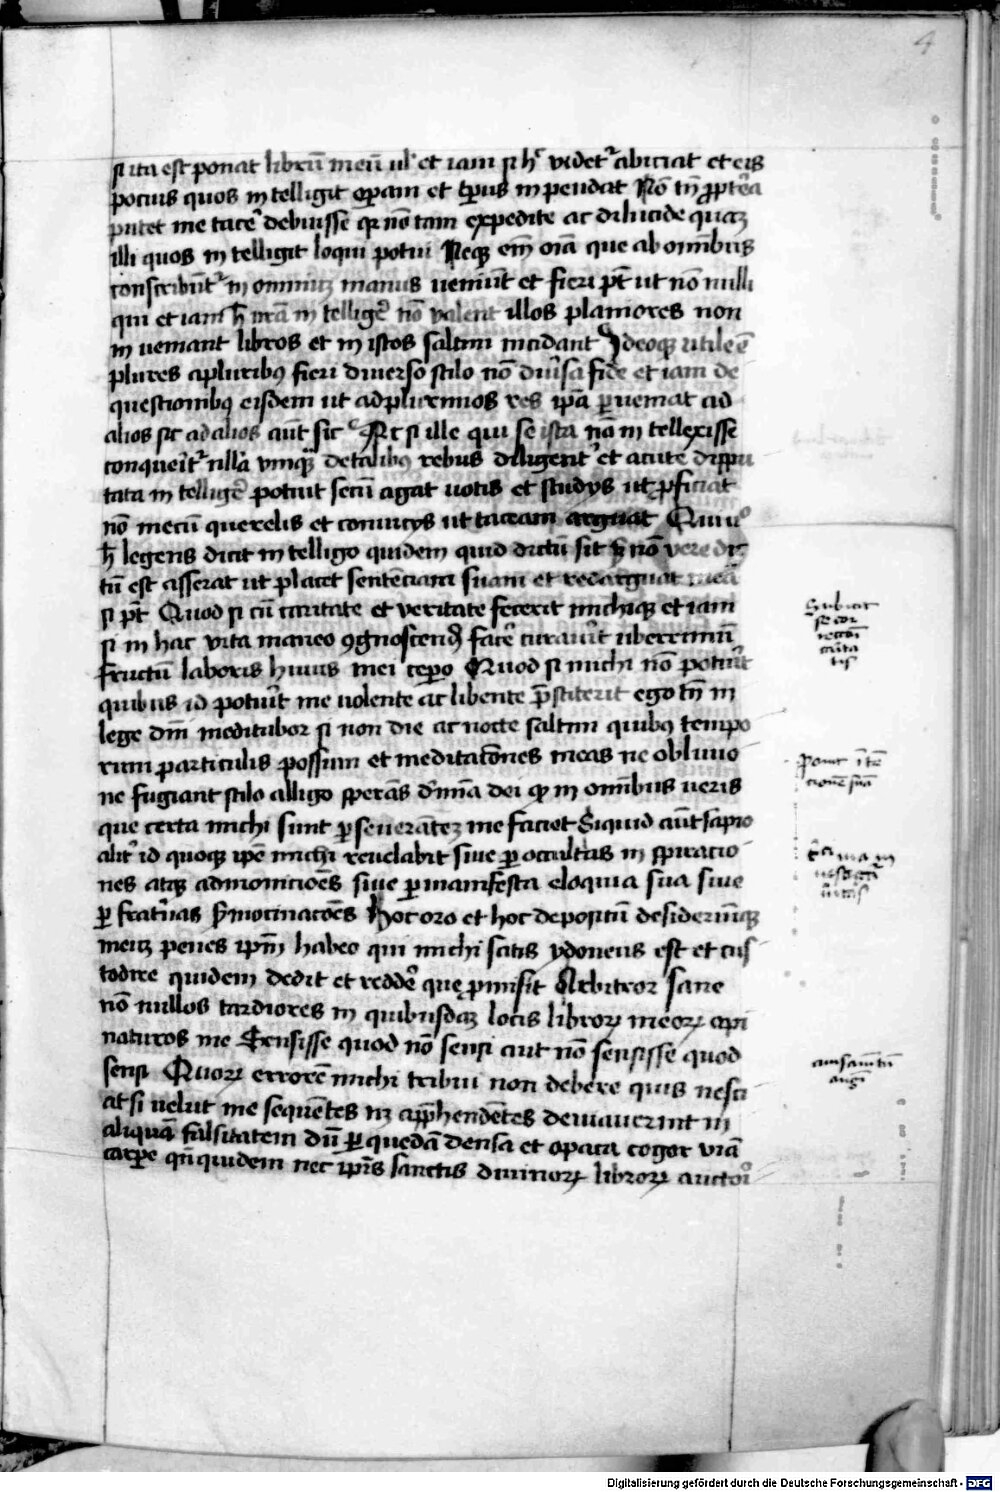 4
si ita est ponat librū meū ul' et iam si h' videt᷑ abiciat et eis
pocius quos in telligit oꝑam et tꝑus in pendat Nō tn̄ ꝓpt'ea
putet me tace' debuisse qꝛ nō tam expedite ac dilucide quaꝫ
illi quos in telligit loqui potui Neqꝫ em̄ oīa que ab omībus
conscribūt᷑ in ominiuꝫ manus ueniūt et fieri pt̄ ut nō nulli
qui et iam h̄ nrā in tellige' nō valent illos planiores non
in ueniant libros et in istos saltim incidant Ideoqꝫ utile ē
plures a pluribꝫ fieri diuerso stilo nō diu'sa fide et iam de
questionibꝫ eisdem ut ad plurimos res ipā ꝑueniat ad
alios sic ad alios aūt sic At si ille qui se ista nō in tellexisse
conquerit᷑ nulla vmqᷓ de talibꝫ rebus diligent' et acute dispu
tata in tellige' potuit secū agat uotis et studiis ut ꝓficiat
nō mecū querelis et conuiciis ut taceam arguat Qui u°
h̄ legens dicit in telligo quidem quid dictū sit sꝫ nō vere dic
tū est asserat ut placet sentenciam suam et redarguat meā
si pt̄ Quod si cū caritate et veritate fecerit michiqꝫ et iam
si in hac vita maneo ꝯgnoscend' face' curau'it uberrimū
fructū laboris huius mei cepo Quod si michi nō potu'it
quibus id potu'it me uolente ac libente p̄stiterit ego tn̄ in
lege dn̄i meditabor si non die ac nocte saltim quibꝫ tempo
rum particulis possum et meditacōnes meas ne obliuio
ne fugiant stilo alligo sperās d' mīa dei ꝙ in omnibus ueris
que certa michi sunt ꝑseuerāteꝫ me faciet Siquid aūt sapio
alit' id quoqꝫ ipē michi reuelabit siue ꝑ occultas in spiracio
nes atqꝫ admonicioēs siue ꝑ manifesta eloquia sua siue
ꝑ frat'nas s'mocinacōēs Hoc oro et hoc depositū desideriūqꝫ
meuꝫ penes ipm̄ habeo qui michi satis ydoneus est et cus
todire quidem dedit et redde' quę ꝓmisit Arbitror sane
nō nullos tardiores in quibusdaꝫ locis libroꝝ meoꝝ opi
naturos me sensisse quod nō sensi aut nō sensisse quod
sensi Quoꝝ errorē michi tribui non debere quis nesci
at si uelut me sequētes nꝫ app̄hendētes deuiauerint in
aliquā falsitatem dū ꝑ quedā densa et opaca cogor viā
carpe qn̄quidem nec ipīs sanctis diuinoꝝ libroꝝ auctoi°
Subicit
se cor
rectōi
carita
tis
ponit ītē
cionē suā